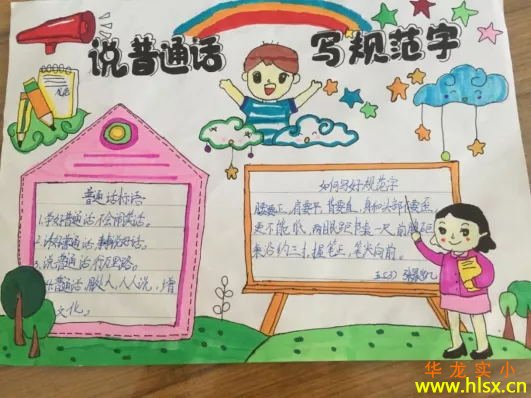 说普通话 写规范字
普通话标语
1.学好普通话,不会闹笑话。
2.讲好普通话,
3.说普通话,行万里路。
4.普通话,人人说,增
文化。
如何写好规范字
腰要正,肩要平,背要直,身和头部
更不能趴,两目距书本一尺,前胸距
桌沿约三寸,握笔正,笔尖向前。
五(3)
华龙实小
www.hlsx.cn